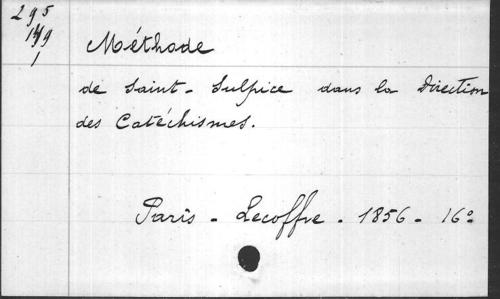 295
149
1
Méthode
de Saint-Sulpice dans la Direction
des Catéchismes.
Paris - Lecoffre - 1856 - 16º